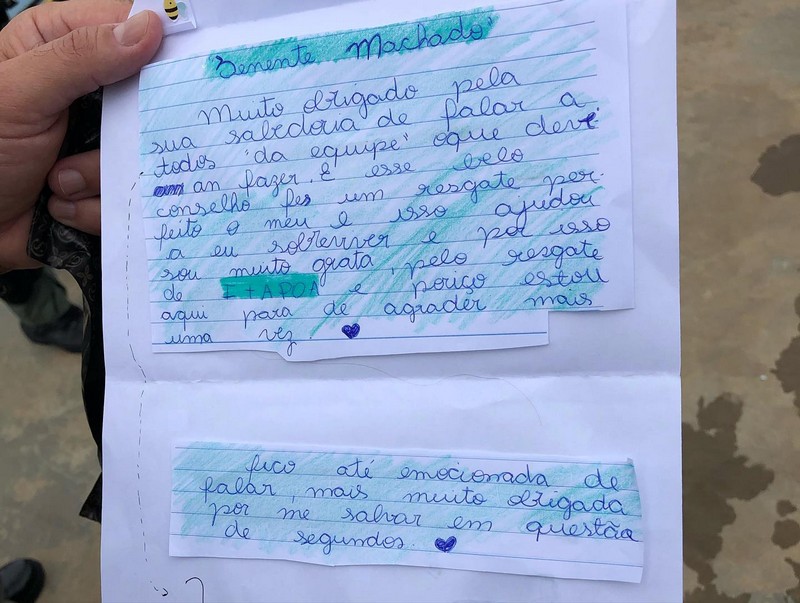 Tenente Machado
Muito obrigado pela
sua sabedoria de falar a
todos "da equipe" oque deve
an fazer. E esse belo
conselho fes um resgate per-
feito o meu e isso ajudou
a eu sobreviver e por isso
sou muito grata, pelo resgate
de ITAPOÃ e poriço estou
aqui para de agrader mais
uma vez. ♥
fico até emocionada de
falar, mais muito obrigada
por me salvar em questão
de segundos. ♥